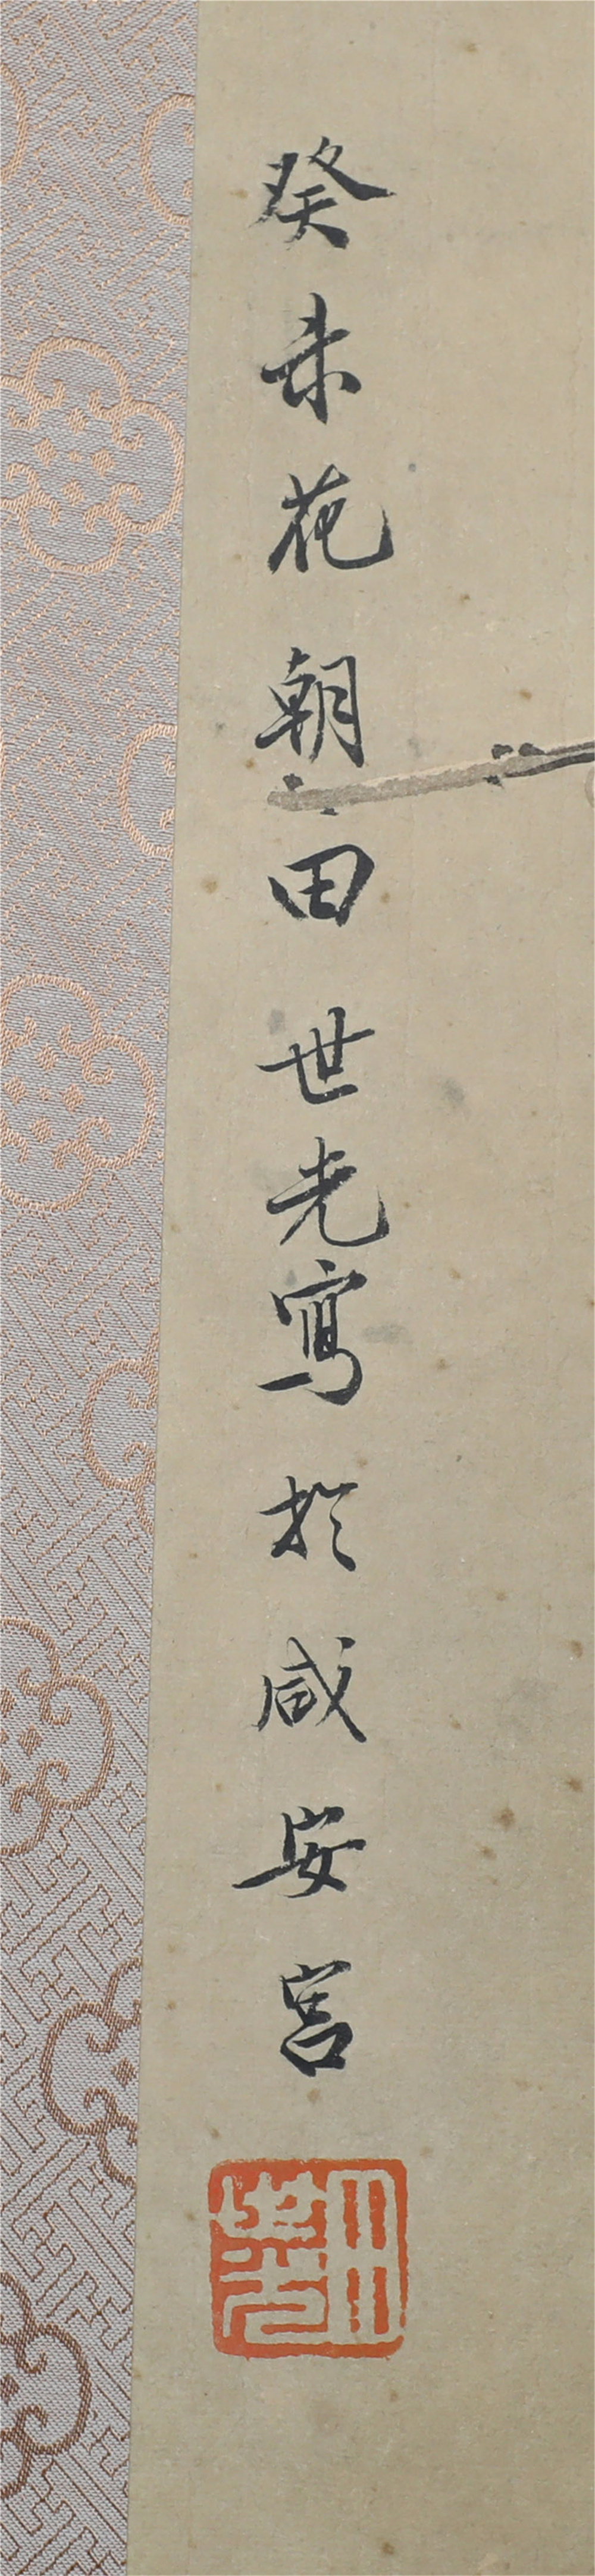 癸未花朝田世光寫於咸安宮
田世光